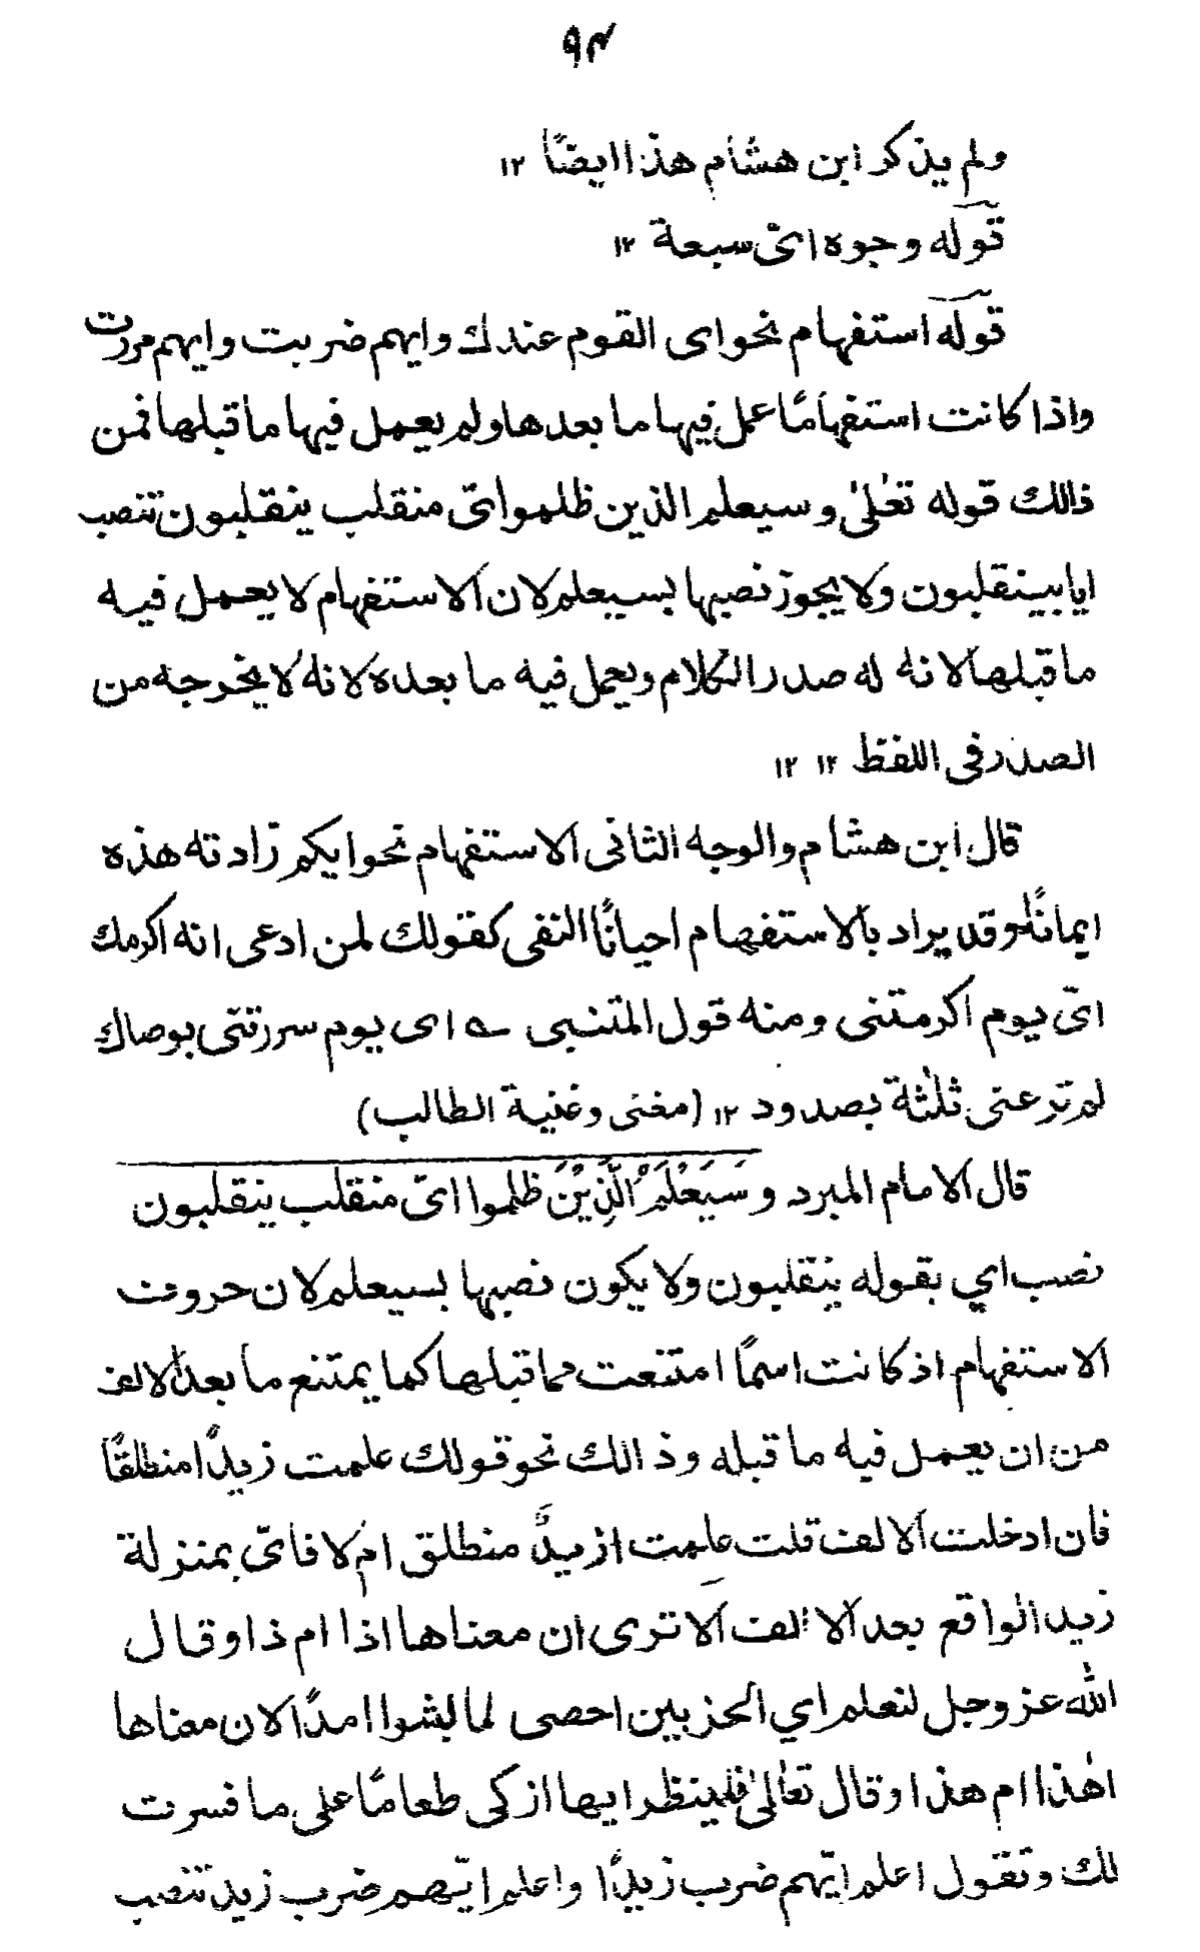 ۹۴
ولم يذكر ابن هشام هذا ايضًا ۱۲
قوله وجوه اىّ سبعة ۱۲
قوله استفهام نحو اى القوم عندك وايهم ضربت وايهم مررت
واذا كانت استفهامًا عمل فيها ما بعدها ولم يعمل فيها ما قبلها فمن
ذالك قوله تعٰلىٰ وسيعلم الذين ظلموا اىّ منقلب ينقلبون تنصب
ايا بينقلبون ولا يجوز نصبها بسيعلم لان الاستفهام لا يعمل فيه
ما قبلها لانه له صدر الكلام ويعمل فيه ما بعده لانه لا يخرجه من
الصدر فى اللفظ ۱۲ ۱۲
قال ابن هشام والوجه الثانى الاستفهام نحو ايكم زادته هذه
ايمانًا وقد يراد بالاستفهام احيانًا النفى كقولك لمن ادعى انه اكرمك
اىّ يوم اكرمتنى ومنه قول المتنبى ؎ اى يوم سررتنى بوصالك
لم ترعنى ثلٰثة بصدود ۱۲ (مغنى وغنية الطالب)
قال الامام المبرد وَسَيَعْلَمُ الَّذِيْنَ ظلموا اىّ منقلب ينقلبون
نصب اي بقوله ينقلبون ولا يكون نصبها بسيعلم لان حروف
الاستفهام اذ كانت اسمًا امتنعت مما قبلها كما يمتنع ما بعد الالف
من ان يعمل فيه ما قبله وذالك نحو قولك علمت زيدًا منطلقًا
فان ادخلت الالف قلت علمت ازيدٌ منطلق ام لا فاىّ بمنزلة
زيد الواقع بعد الالف الا ترى ان معناها اذا ام ذا وقال
الله عز وجل لنعلم اي الحزبين احصى لما لبثوا امدًا لان معناها
اهٰذا ام هذا وقال تعٰالىٰ فلينظر ايها ازكى طعامًا على ما فسرت
لك وتقول اعلم ايّهم ضرب زيدًا واعلم ايّهم ضرب زيد تنصب